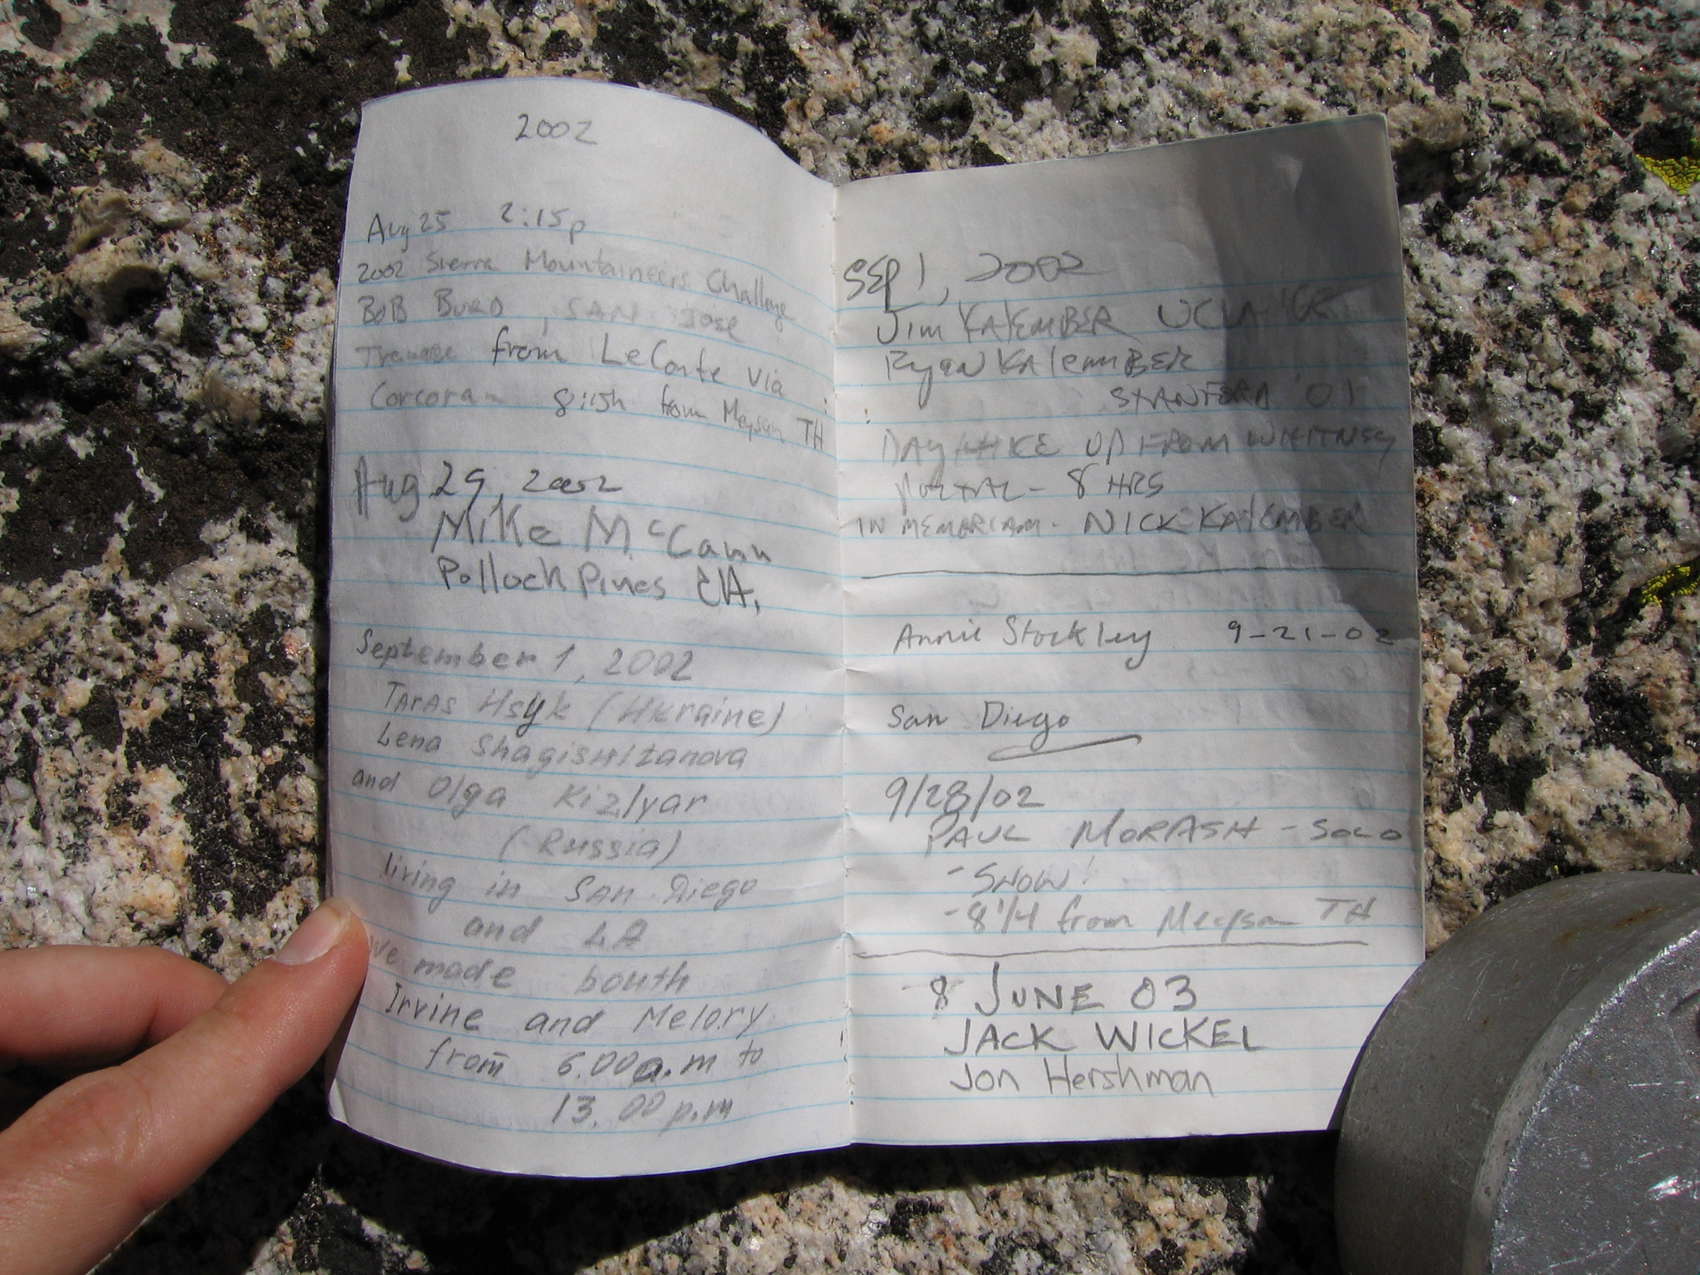 2002
Aug 25 2:15p
2002 Sierra Mountaineers Challenge
BOB BURD, SAN Jose
Traverse from LeConte via
Corcoran 8:15h from Meysan TH
Aug 29, 2002
Mike McCann
Pollock Pines CA,
September 1, 2002
TArAs Hsyk (Ukraine)
Lena
and Olga Kizlyar
(Russia)
living in SAn Diego
and LA
We made bouth
Irvine and Melory
from 6.00a.m to
13.00 p.m
SEP 1, 2002
Jim KALEMBER UCLA
Ryan KALEMBER
STANFORD '01
DAY HIKE UP FROM WHITNEY
PORTAL - 8 HRS
IN MEMORIAM - NICK KALEMBER
Annie Stockley 9-21-02
San Diego
9/28/02
PAUL MORASH - SOLO
- SNOW!
- 8 1/4 from Meysan TH
8 JUNE 03
JACK WICKEL
Jon Hershman